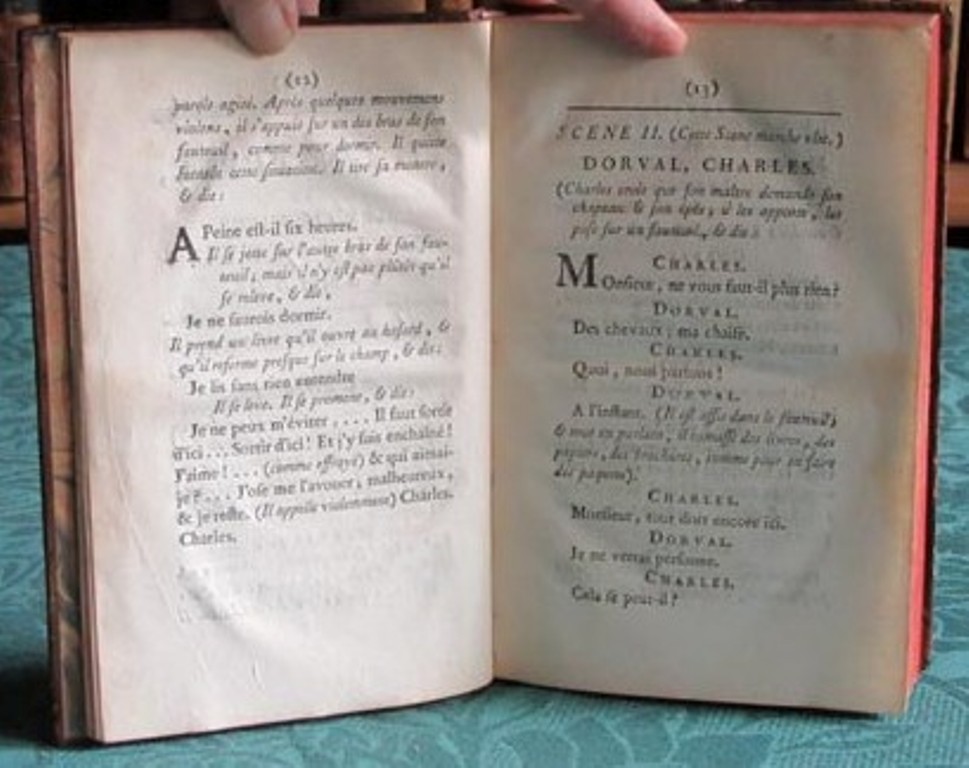 (12)
parole agité. Après quelques mouvemens
violens, il s'appuie sur un des bras de son
fauteuil, comme pour dormir. Il quitte
bientôt cette situation. Il tire sa montre,
& dit:
A Peine est-il six heures.
Il se jette sur l'autre bras de son fau-
teuil; mais il n'y est pas plûtôt qu'il
se releve, & dit,
Je ne sçaurois dormir.
Il prend un livre qu'il ouvre au hasard, &
qu'il referme presque sur le champ, & dit:
Je lis sans rien entendre
Il se leve. Il se promene, & dit:
Je ne peux m'éviter .... Il faut sortir
d'ici... Sortir d'ici! Et j'y suis enchaîné!
J'aime!... (comme effrayé) & qui aimai-
je?... J'ose me l'avouer, malheureux,
& je reste. (Il appelle violemment) Charles,
Charles.
(13)
SCENE II. (Cette Scene marche vîte.)
DORVAL, CHARLES.
(Charles croit que son maître demande son
chapeau & son épée; il les apporte, les
pose sur un fauteuil, & dit:
CHARLES.
MOnsieur, ne vous faut-il plus rien?
DORVAL.
Des chevaux; ma chaise.
CHARLES.
Quoi, nous partons!
DORVAL.
A l'instant. (Il est assis dans le fauteuil;
& tout en parlant, il ramasse des livres, des
papiers, des brochures, comme pour en faire
des paquets).
CHARLES.
Monsieur, tout dort encore ici.
DORVAL.
Je ne verrai personne.
CHARLES.
Cela se peut-il?